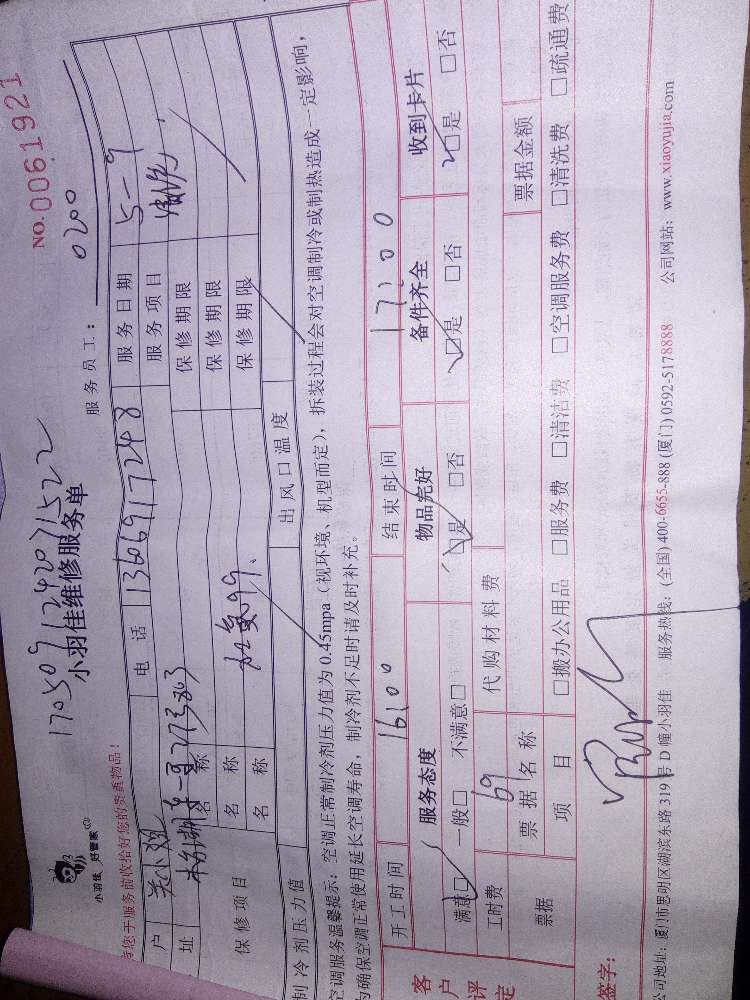 NO.0061921
1705091242071522
小羽佳 好管家
小羽佳维修服务单
服务员工： 0200
请您于服务前收拾好您的贵重物品！
户 电话 13606917248 服务日期 5-9
址 服务项目
保修项目 名称 保修期限
名称 保修期限
名称 保修期限
制冷剂压力值 出风口温度
空调服务温馨提示：空调正常制冷剂压力值为0.45mpa（视环境、机型而定），拆装过程会对空调制冷或制热造成一定影响，
为确保空调正常使用延长空调寿命，制冷剂不足时请及时补充。
开工时间 16:00 结束时间 17:00
客户评定 服务态度 物品完好 备件齐全 收到卡片
满意□ 一般□ 不满意□ □是 □否 □是 □否 □是 □否
工时费 69 代购材料费
票据 票据名称 票据金额
项目 □搬办公用品 □服务费 □清洁费 □空调服务费 □清洗费 □疏通费
签字：
公司地址：厦门市思明区湖滨东路319号D幢小羽佳 服务热线：(全国) 400-6655-888 (厦门) 0592-5178888 公司网站：www.xiaoyujia.com